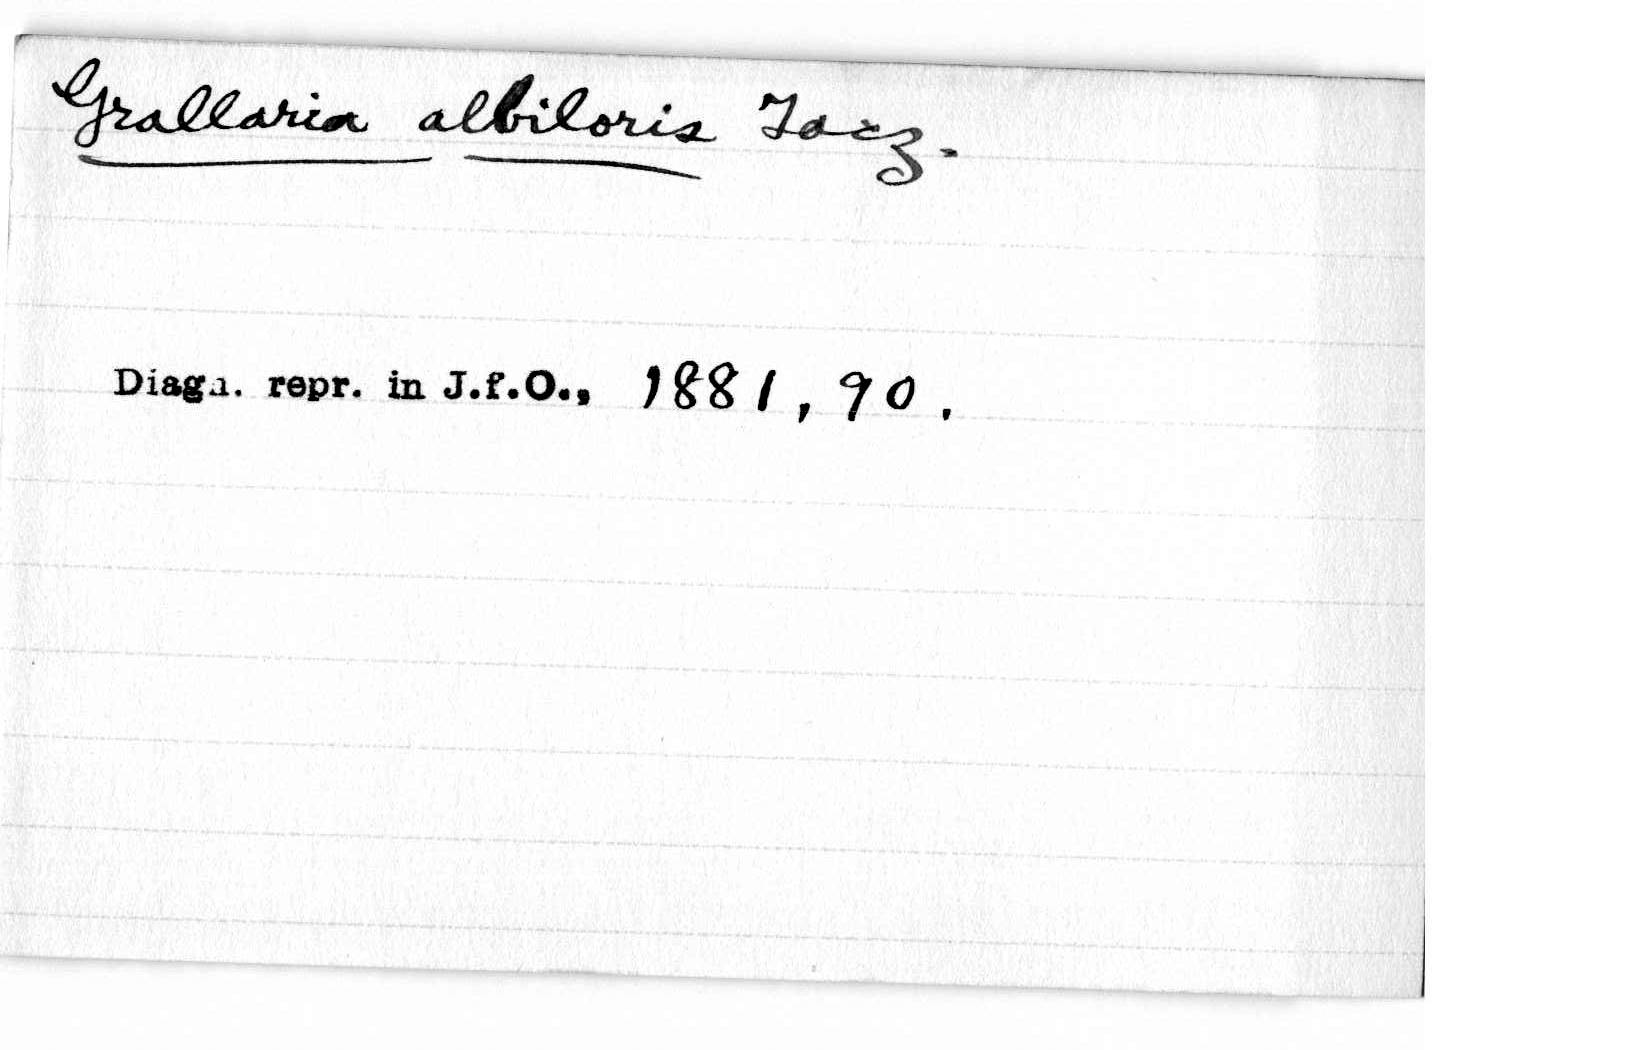 Grallaria albiloris Tacz.
Diagn. repr. in J.f.O., 1881, 90.